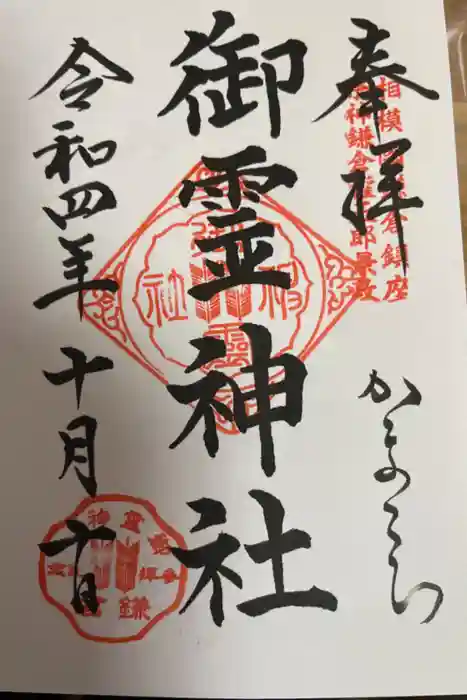 奉拝
相模国鎌倉鎮座
祭神鎌倉権五郎景政
かまくら
御霊神社
令和四年十月十日